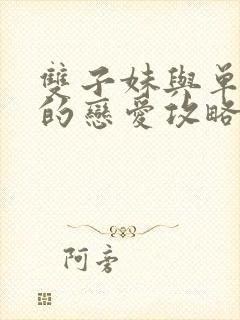 雙子妹與單
的戀愛攻略
阿旁